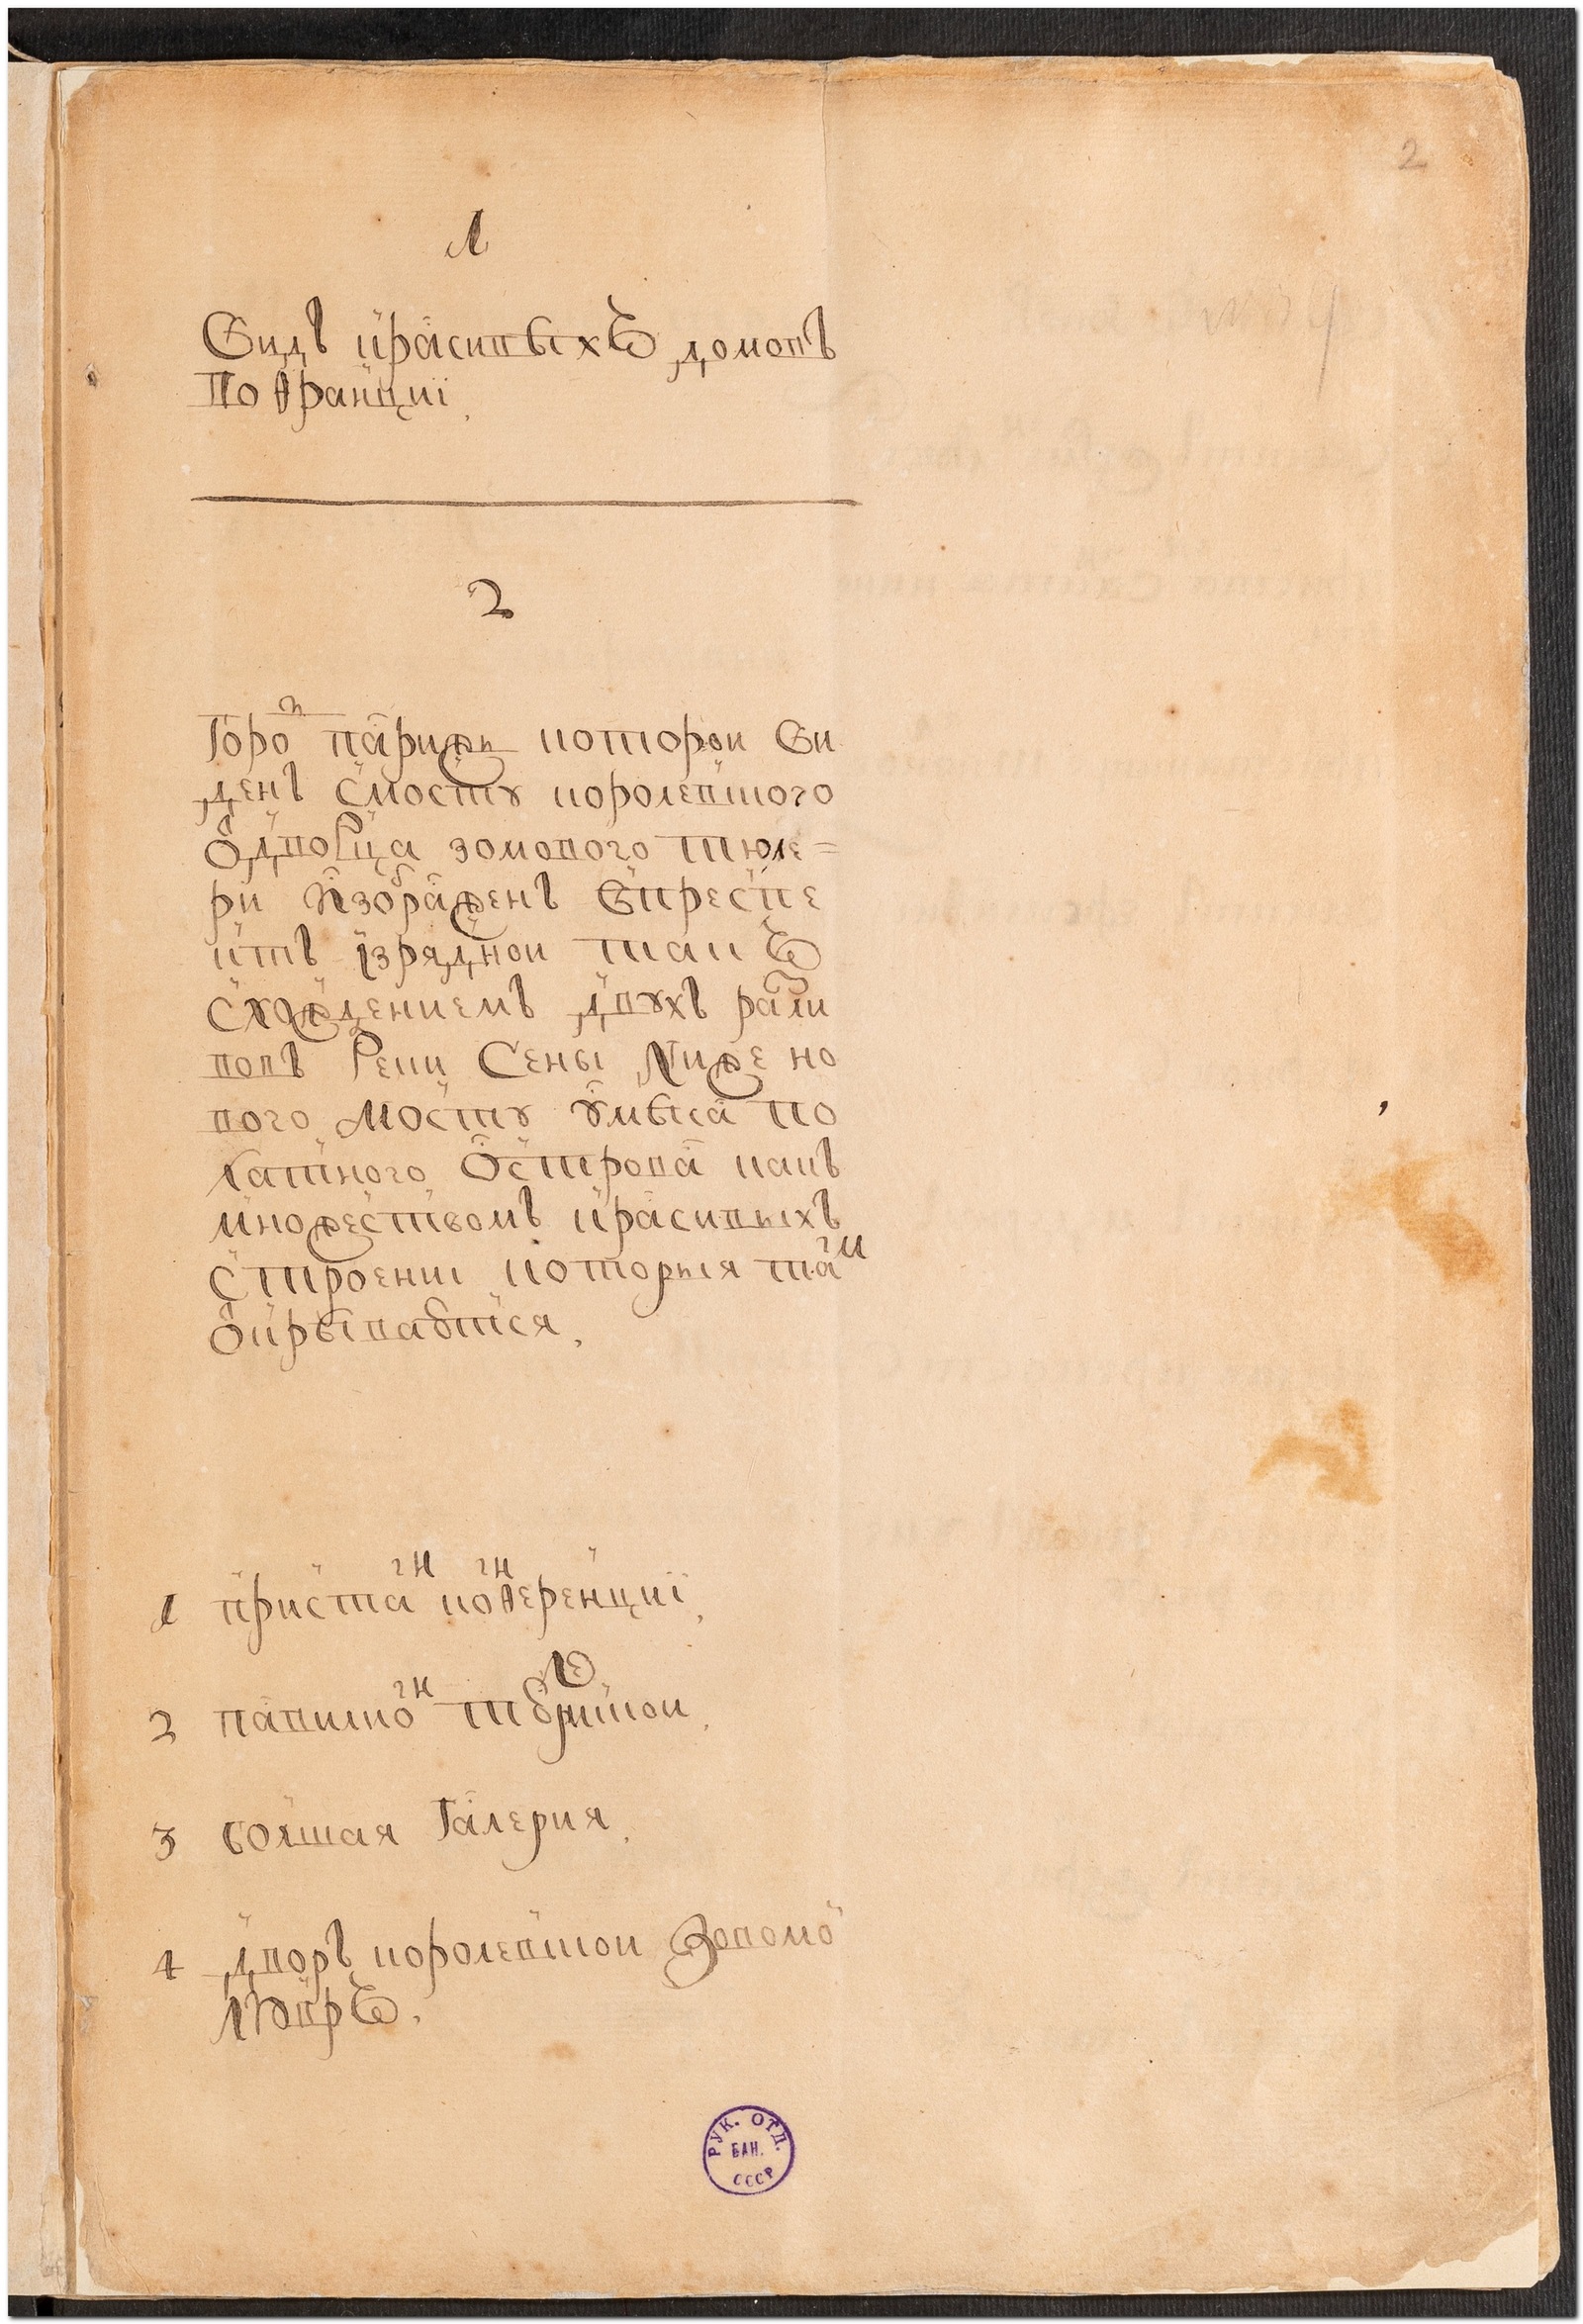 2
1
Видъ красивыхъ домовъ
во Франціи,
2
Горо д парижъ которои ви
денъ смосту королевского
одворца зомового тюле=
ри изображенъ впрестпе
ктъ изряднои такъ
схождениемъ двухъ рали
вовъ Реки Сены ниже но
вого мосту умыса по
латного острова какъ
множествомъ красивыхъ
строении которыя та м
окрываются,
1 пристан конференции,
2 павилион
3 болшая Галерия,
4 дворъ королевскои зовомо
лувръ,
РУК. ОТД.
БАН.
СССР